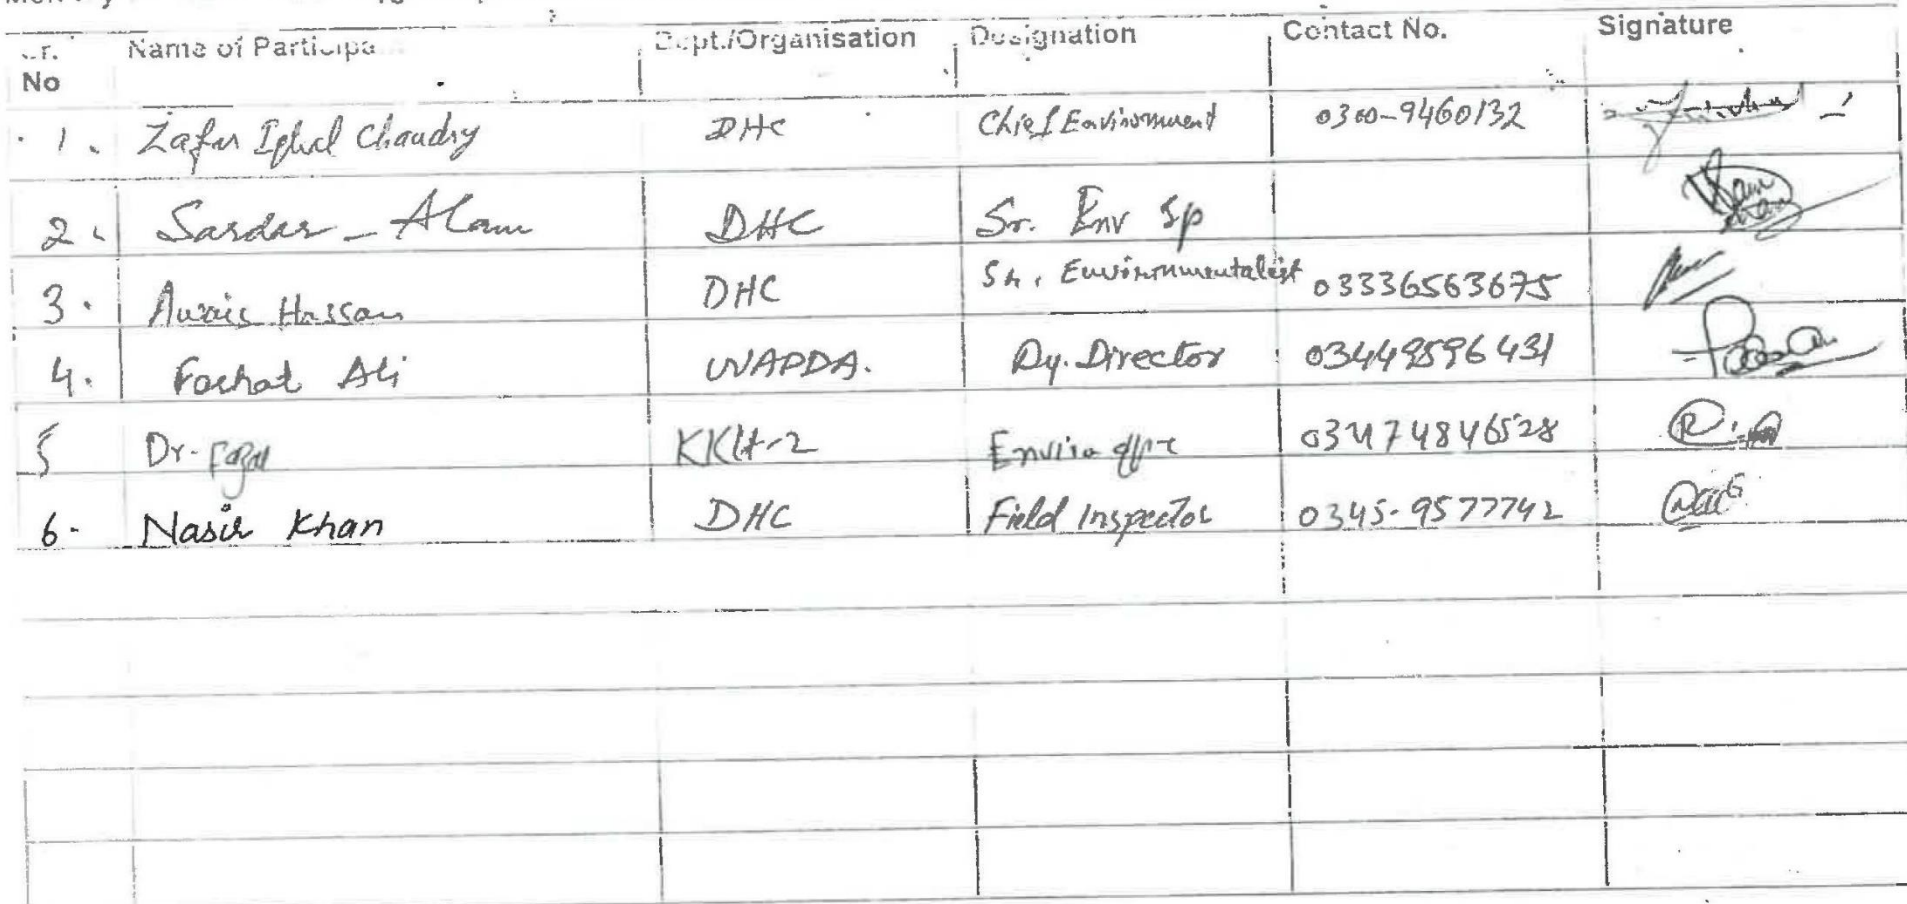 No Name of Participa Dept./Organisation Designation Contact No. Signature
1. Zafar Iqbal Chaudry DHC Chief Environment 0300-9460132
2. Sardar - Alam DHC Sr. Env Sp
3. Awais Hassan DHC Sn. Environmentalist 03336563675
4. Farhat Ali WAPDA. Dy. Director 03449596431
5 Dr. Fazal KKH-2 03474846528
6. Nasir Khan DHC Field Inspector 0345-9577742